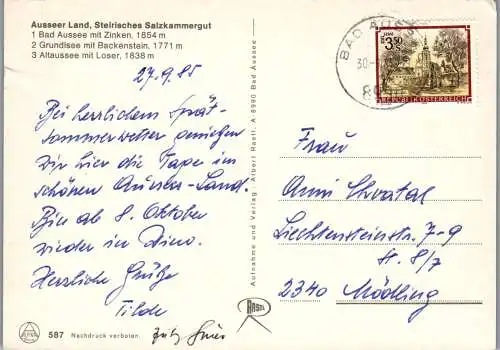 Ausseer Land, Steirisches Salzkammergut
1 Bad Aussee mit Zinken, 1854 m
2 Grundlsee mit Backenstein, 1771 m
3 Altaussee mit Loser, 1838 m
27.9.85
Bei herrlichem Spät-
sommerwetter genießen
wir hier die Tage im
schönen Ausseer-Land.
Bin ab 8. Oktober
wieder in Wien.
Herzliche Grüße
Tilde
587 Nachdruck verboten.
Aufnahme und Verlag: Albert Rastl, A-8990 Bad Aussee
RASTL
BAD AUS
30.
3.50
REPUBLIK ÖSTERREICH
Frau
Anni Chvatal
Liechtensteinstr. 7-9
St. 8/7
2340 Mödling